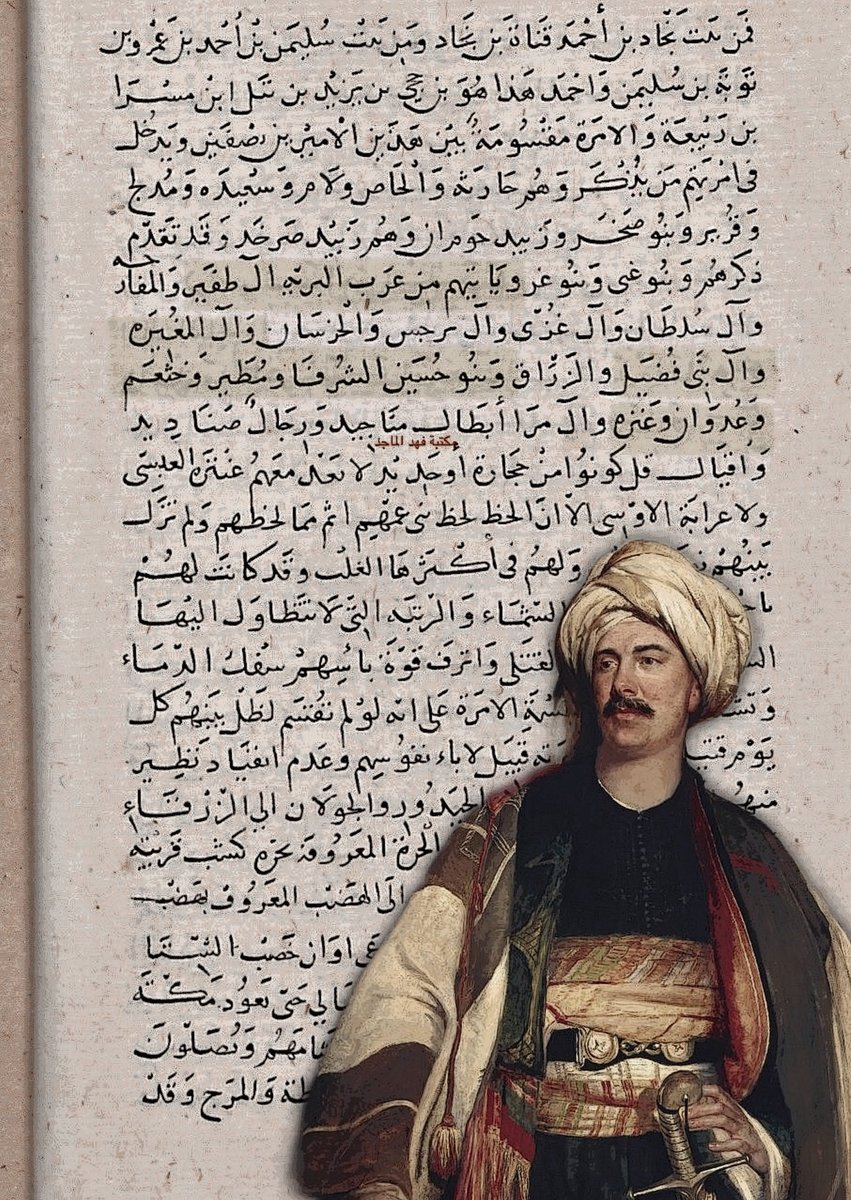 فمن بيت نجاد بن أحمد قناة بن نجاد ومن بيت سليمن بن أحمد بن عمرو بن
توبة بن سليمن واحمد هذا هو بن حجي بن يزيد بن شبل ابن مسرا
بن ربيعة والامرة مقسومة بين هذين الاميرين نصفين ويدخل
في امرتهم من يذكر وهم حارثه والخاص ولام وسعيده ومدلج
وقرير وبنو صخر وزبيد حوران وهم زبيد صرخد وقد تقدم
ذكرهم وبنو غنى وبنو عز ويايتهم من عرب البريه آل ظفير والمفارجه
وآل سلطان وآل غزى وآل برجس والخرسان وآل المغيره
وآل بنى فضيل والزراق وبنو حسين الشرفا ومطير وخثعم
وعدوان وعنزه وآل مرا أبطال مناجيد ورجال صناديد
مكتبة فهد الماجد
واقيال قل كونوا من حجارة اوحديد لا يعد معهم عنترة العبسى
ولا عرابة الاوسى الا ان الحظ لحظ بنى عمهم اتم مما لحظهم ولم تزل
بينهم ولهم في أكثرها الغلب وقد كانت لهم
السماء والرتبه التى لا تتطاول اليها
القتلى واترف قوة بائسهم سفك الدماء
الامرة على انه لو لم تقتسم لظل بينهم كل
يوم قتيل لاباء نفوسهم وعدم انقياد نظير
منهم الحيدور والجولان الي الزرقاء
الحرة المعروفة بحره كشب قريبه
الى الهضب المعروف بهضب
اوان خصب الشتا
حتى تعود مكة
ويصلون
والمرج وقد